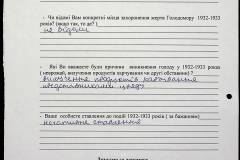 - Чи відомі Вам конкретні місця захоронення жертв Голодомору 1932-1933
років? (якщо так, то де? )
не відомі
Які Ви вважаєте були причини виникнення голоду у 1932-1933 роках
( неврожай, вилучення продуктів харчування чи другі обставини? )
вилучення продуктів харчування
представниками влади
- Ваше особисте ставлення до подій 1932-1933 років ( за бажанням)
негативне ставлення